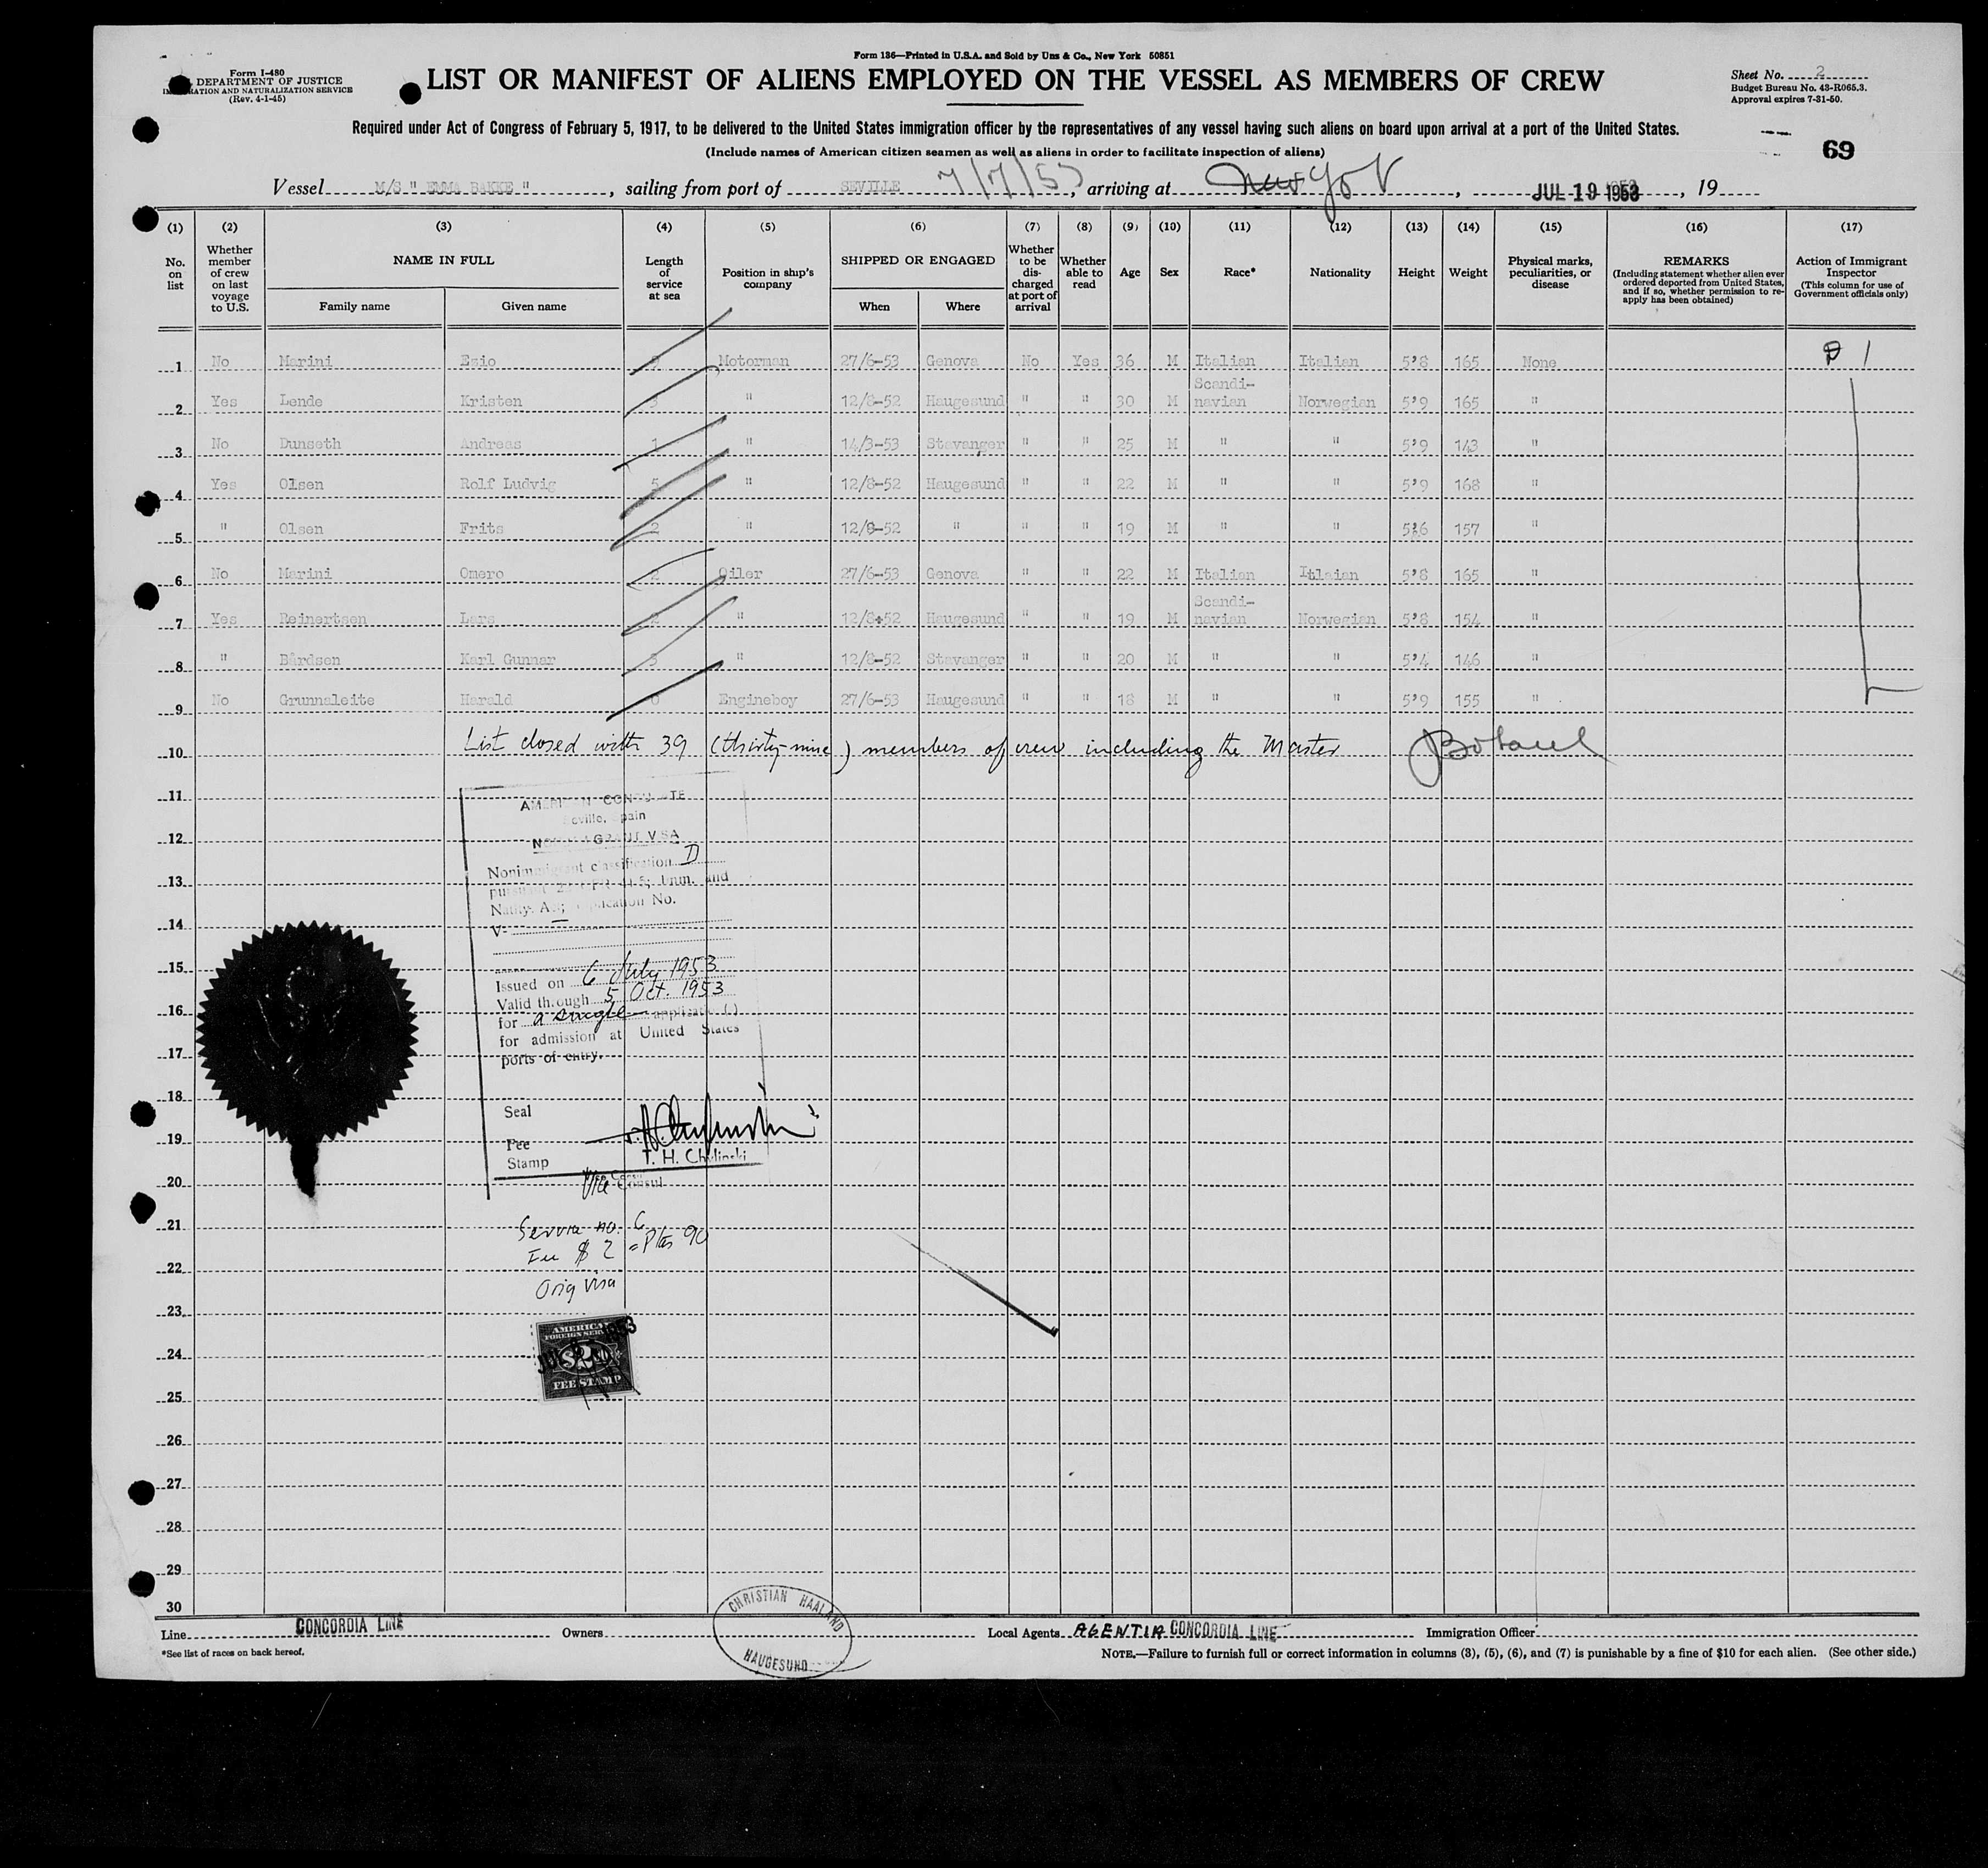 Form 136—Printed in U.S.A. and Sold by Uns & Co., New York 50851
Form I-480
DEPARTMENT OF JUSTICE
IMMIGRATION AND NATURALIZATION SERVICE
(Rev. 4-1-45)
LIST OR MANIFEST OF ALIENS EMPLOYED ON THE VESSEL AS MEMBERS OF CREW
Sheet No. 2
Budget Bureau No. 43-R065.3.
Approval expires 7-31-50.
Required under Act of Congress of February 5, 1917, to be delivered to the United States immigration officer by the representatives of any vessel having such aliens on board upon arrival at a port of the United States.
(Include names of American citizen seamen as well as aliens in order to facilitate inspection of aliens)
69
Vessel M/S " EMMA BAKKE ", sailing from port of SEVILLE 7/7/53, arriving at New York, JUL 19 1953, 19
(1) (2) (3) (4) (5) (6) (7) (8) (9) (10) (11) (12) (13) (14) (15) (16) (17)
No. on list
Whether member of crew on last voyage to U.S.
NAME IN FULL
Family name
Given name
Length of service at sea
Position in ship's company
SHIPPED OR ENGAGED
When
Where
Whether to be discharged at port of arrival
Whether able to read
Age
Sex
Race*
Nationality
Height
Weight
Physical marks, peculiarities, or disease
REMARKS
(Including statement whether alien ever ordered deported from United States, and if so, whether permission to re-apply has been obtained)
Action of Immigrant Inspector
(This column for use of Government officials only)
1 No Marini Ezio Motorman 27/6-53 Genova No Yes 36 M Italian Italian 5'8 165 None
2 Yes Lende Kristen 3 " 12/8-52 Haugesund " " 30 M Scandi-navian Norwegian 5'9 165 "
3 No Dunseth Andreas 1 " 14/3-53 Stavanger " " 25 M " " 5'9 143 "
4 Yes Olsen Rolf Ludvig 5 " 12/8-52 Haugesund " " 22 M " " 5'9 168 "
5 " Olsen Frits 2 " 12/8-52 " " " 19 M " " 5'6 157 "
6 No Marini Omero 2 Oiler 27/6-53 Genova " " 22 M Italian Itlaian 5'8 165 "
7 Yes Reinertsen Lars 2 " 12/8-52 Haugesund " " 19 M Scandi-navian Norwegian 5'8 154 "
8 " Bårdsen Karl Gunnar 3 " 12/8-52 Stavanger " " 20 M " " 5'4 146 "
9 No Grunnaleite Harald 0 Engineboy 27/6-53 Haugesund " " 18 M " " 5'9 155 "
10 List closed with 39 (thirty-nine) members of crew including the Master
11
12
13
14
15
16
17
18
19
20
21
22
23
24
25
26
27
28
29
30
AMERICAN CONSULATE
Seville, Spain
NONIMMIGRANT VISA
Nonimmigrant classification D
pursuant 22 CFR 41.5; Imm. and
Natity. Act; Application No.
V-
Issued on 6 July 1953
Valid through 5 Oct. 1953
for a single applicat ( )
for admission at United States
ports of entry.
Seal
Fee
Stamp
T. H. Chylinski
Vice Consul
Service no. 6
Fee $ 2 = Ptas 90
Orig visa
AMERICAN
FOREIGN SERVICE
$2.00
FEE STAMP
Line CONCORDIA LINE Owners CHRISTIAN HAALAND HAUGESUND Local Agents AGENTIA CONCORDIA LINE Immigration Officer
*See list of races on back hereof.
NOTE.—Failure to furnish full or correct information in columns (3), (5), (6), and (7) is punishable by a fine of $10 for each alien. (See other side.)